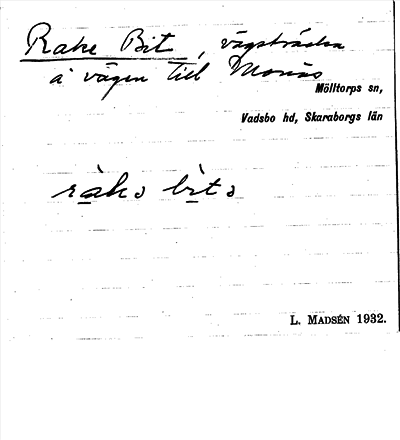 Rake Bit, vägsträcka
å vägen till Monäs
Mölltorps sn,
Vadsbo hd, Skaraborgs län
ràkə bìtə
L. MADSÉN 1932.